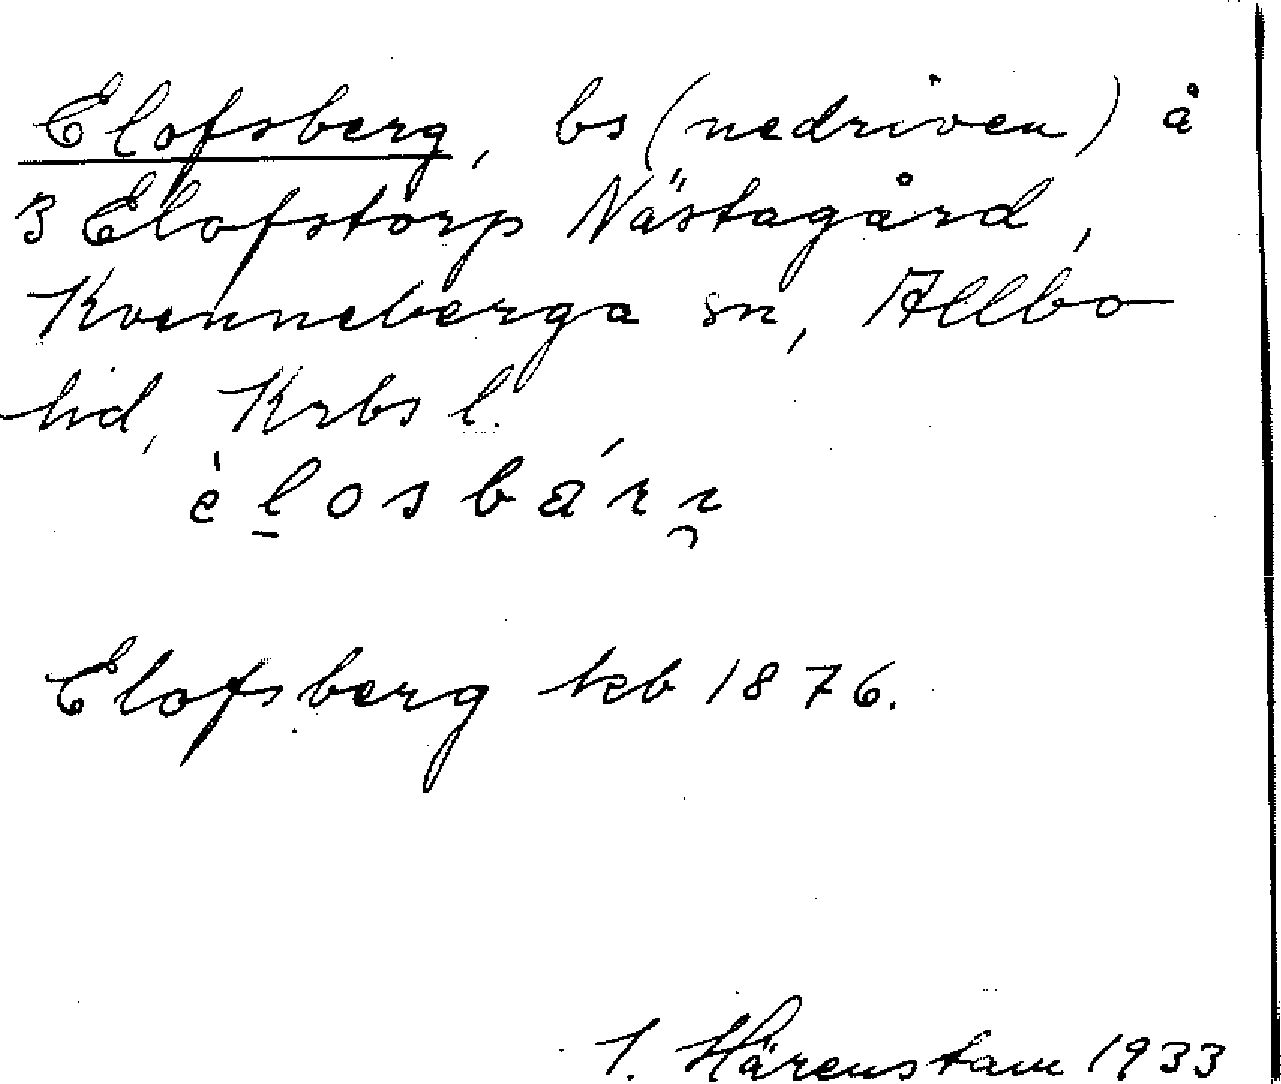 Elofsberg, bs (nedriven) å
3 Elofstorp Nästagård,
Kvenneberga sn, Allbo
hd, Krbs l.
èlosbár
Elofsberg kb 1876.
I. Härenstam 1933